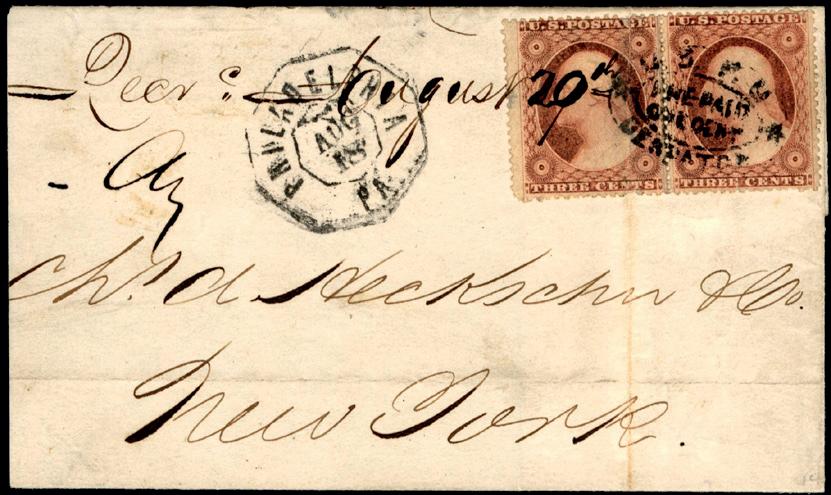 U.S. POSTAGE U.S. POSTAGE
Recd August 20th
PHILADELPHIA
AUG
18
PA.
U.S.P.O.
PREPAID
ONE CENT
DESPATCH
THREE CENTS THREE CENTS
Chs. A. Heckscher & Co.
New York.